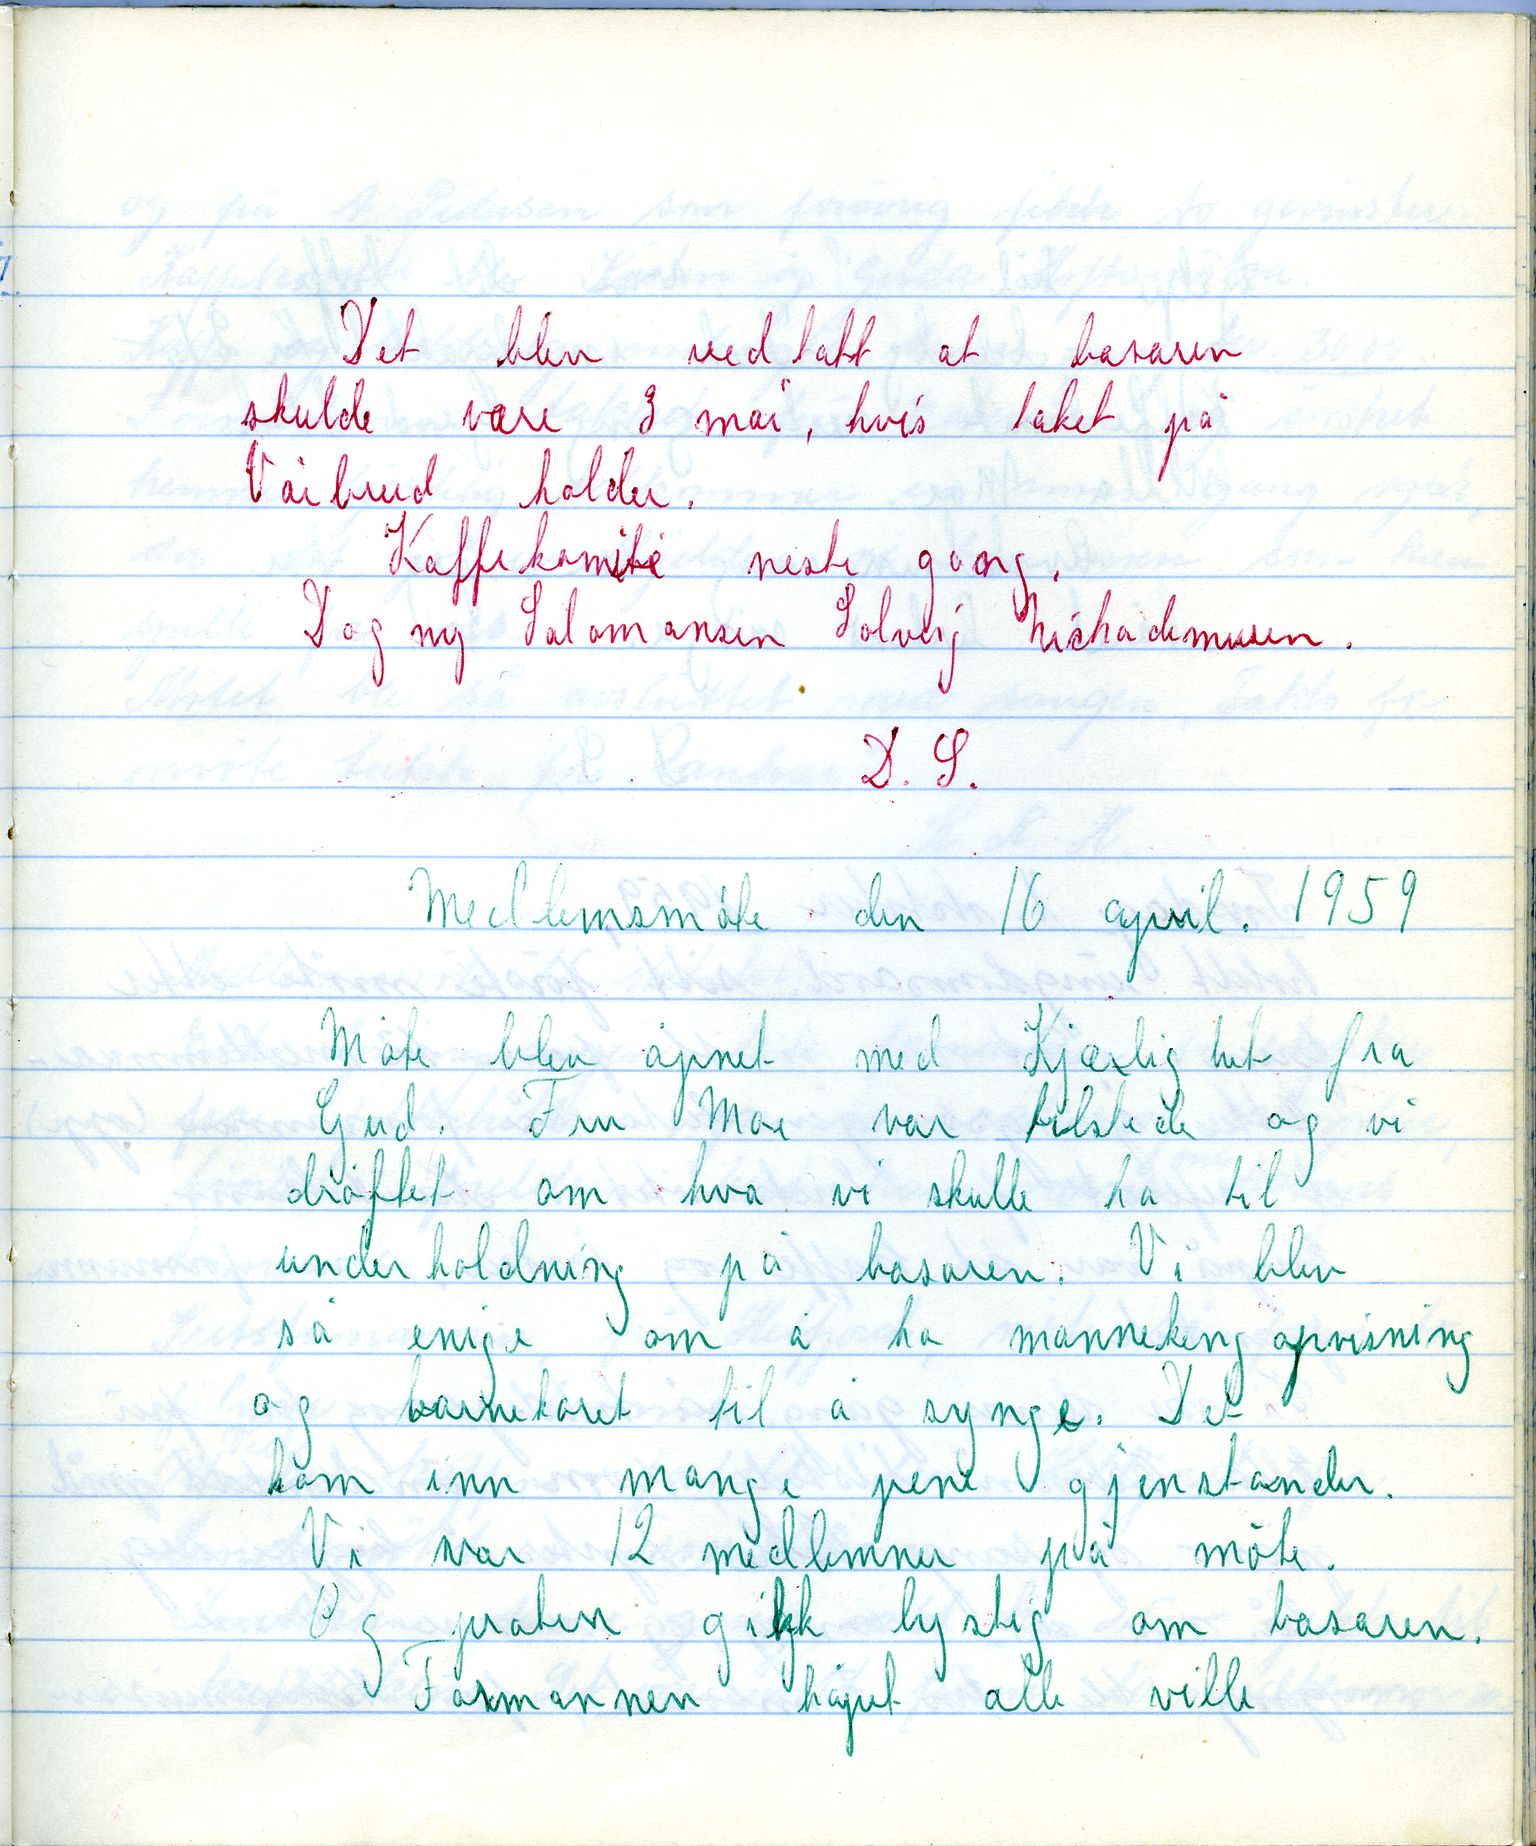 Det blev vedtatt at basaren
skulde være 3 mai, hvis taket på
Vårbrud holder.
Kaffekomité neste gang.
Dagny Salomonsen Solveig
D. S.
Medlemsmöte den 16 april. 1959
Möte blev åpnet med Kjærlighet fra
Gud. Fru Moe var tilstede og vi
dröftet om hva vi skulle ha til
underholdning på basaren. Vi blev
så enige om å ha mannekeng opvisning
og barnekoret til å synge. Det
kom inn mange pene gjenstander.
Vi var 12 medlemmer på möte.
Og praten gikk lystig om basaren.
Formannen håpet alle ville